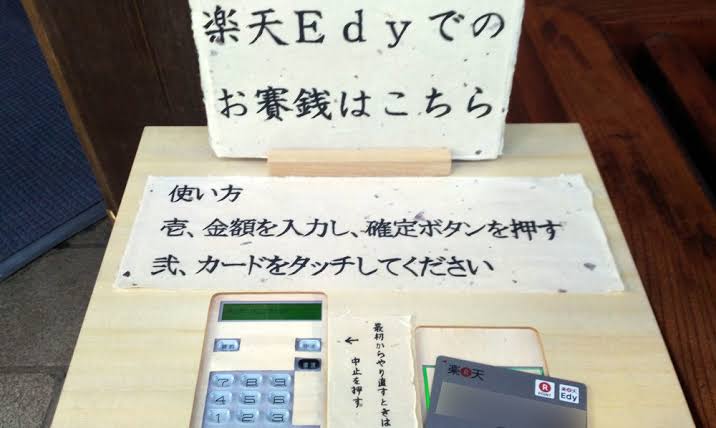 楽天Edyでの
お賽銭はこちら
使い方
壱、金額を入力し、確定ボタンを押す
弐、カードをタッチしてください
最初からやり直すときは
← 中止を押す
7 8 9
4 5 6
1 2 3
楽天
R
POINT
楽天
Edy